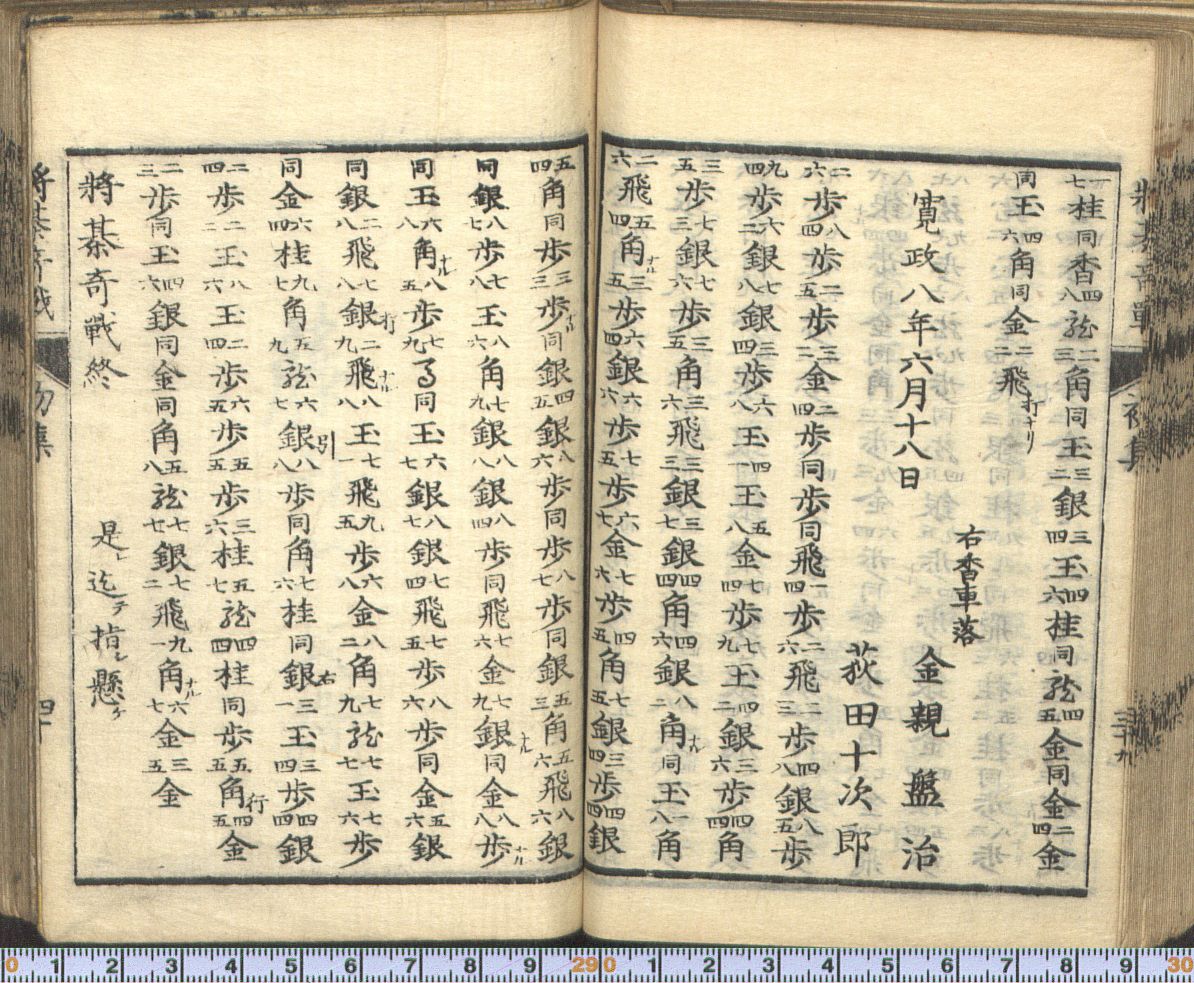 將棊奇戰 初集 三十九
一七桂同香四八龍二三角同玉三二銀三四玉四六桂同龍四五金同金二四金
同玉四六角同金二二飛打ナリ
寛政八年六月十八日
右香車落 金親盤治
荻田十次郎
二六歩八四歩二五歩三二金二四歩同歩同飛一四歩二六飛二三歩四八銀八五歩
九四歩六二銀七八銀三四歩六八玉四一玉五八金七四歩七九玉四二銀三六歩四四角
三五歩七七銀七六歩三五角三六飛三三銀三七銀四四角四六銀八八角ナル同玉一八角
二六飛五四角ナル三五歩六四銀六六歩七五歩六七金七六歩四五角七五銀三四歩四四銀
五四角同歩三三歩ナル同銀四五銀八六歩同歩八七歩同銀五三角五六飛八六銀
同銀八七歩七八玉八六角七九銀八八銀八四歩同飛七六金七九銀ナル同金八八歩ナル
同玉六八角ナル八五歩七九馬同玉六七銀八七銀七四飛七五歩八六歩同金五六銀
同銀二八飛七八銀打二九飛ナル八八玉七一飛九五歩六八金八二角七九龍七七玉七六歩
同金六四桂九七角五九龍六七銀引八八歩同角七六桂同銀右三一玉三四歩四四銀
二四歩二二玉八六玉二四歩六五歩五五歩三六桂五七龍四四桂同歩五五角行四五金
二三歩同玉四六銀同金同角五八龍七七銀七二飛九一角ナル六七金三五金
將棊奇戰終 是迄テ指シ懸ケ
將棊奇戰 初集 四十